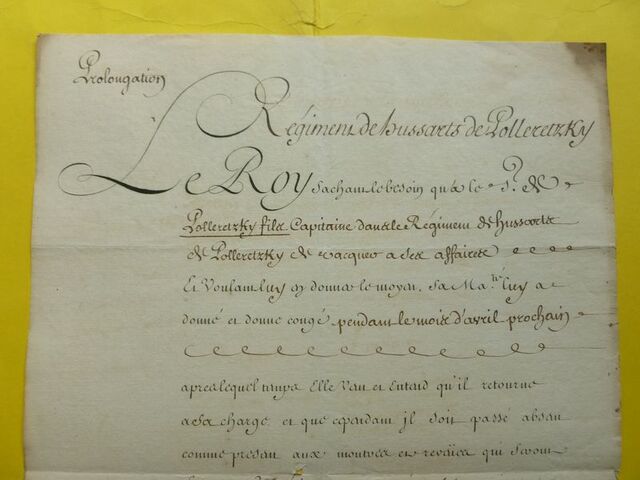 Prolongation
Régiment de hussarts de Polleretzky
Le Roy sachant le besoin qu'a le Sr. de
Polleretzky fils Capitaine dans le Régiment de hussarts
de Polleretzky de vacquer a ses affaires
Et Voulant luy en donner le moyen, sa Ma.té luy a
donné et donne congé pendant le mois d'avril prochain
apres lequel temps Elle Veut et Entend qu'il retourne
a sa charge et que cependant jl soit passé absent
comme present aux montres et reveües qui seront